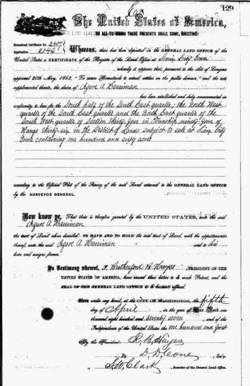 129
The United States of America,
TO ALL TO WHOM THESE PRESENTS SHALL COME, GREETING:
Homestead Certificate No.
Application
Whereas, there has been deposited in the GENERAL LAND OFFICE of the
United States a CERTIFICATE of the Register of the Land Office at Sioux City Iowa
, whereby it appears that, pursuant to the Act of Congress
approved 20th May, 1862, "To secure Homesteads to actual settlers on the public domain," and the acts
supplemental thereto, the claim of
has been established and duly consummated in
conformity to law for the South half of the South East quarter, the North West
quarter of the South East quarter and the North East quarter of the
South West quarter of Section thirty five in Township ninety nine of
Range thirty six in the District of Lands subject to sale at Sioux City
Iowa containing one hundred and sixty acres
according to the Official Plat of the Survey of the said Land returned to the GENERAL LAND OFFICE by the
SURVEYOR GENERAL.
Now know ye, That there is therefore granted by the UNITED STATES, unto the said
the tract of Land above described: TO HAVE AND TO HOLD the said tract of Land, with the appurtenances
thereof, unto the said
and to his
heirs and assigns forever.
In testimony whereof, I, Rutherford B. Hayes, PRESIDENT OF THE
UNITED STATES OF AMERICA, have caused these letters to be made Patent, and the
SEAL OF THE GENERAL LAND OFFICE to be hereunto affixed.
Given under my hand, at the CITY OF WASHINGTON, the fifth
day of April, in the year of Our Lord one thousand
eight hundred and seventy seven, and of the
Independence of the United States the one hundred and first
By the President: R. B. Hayes
By
S. W. Clark